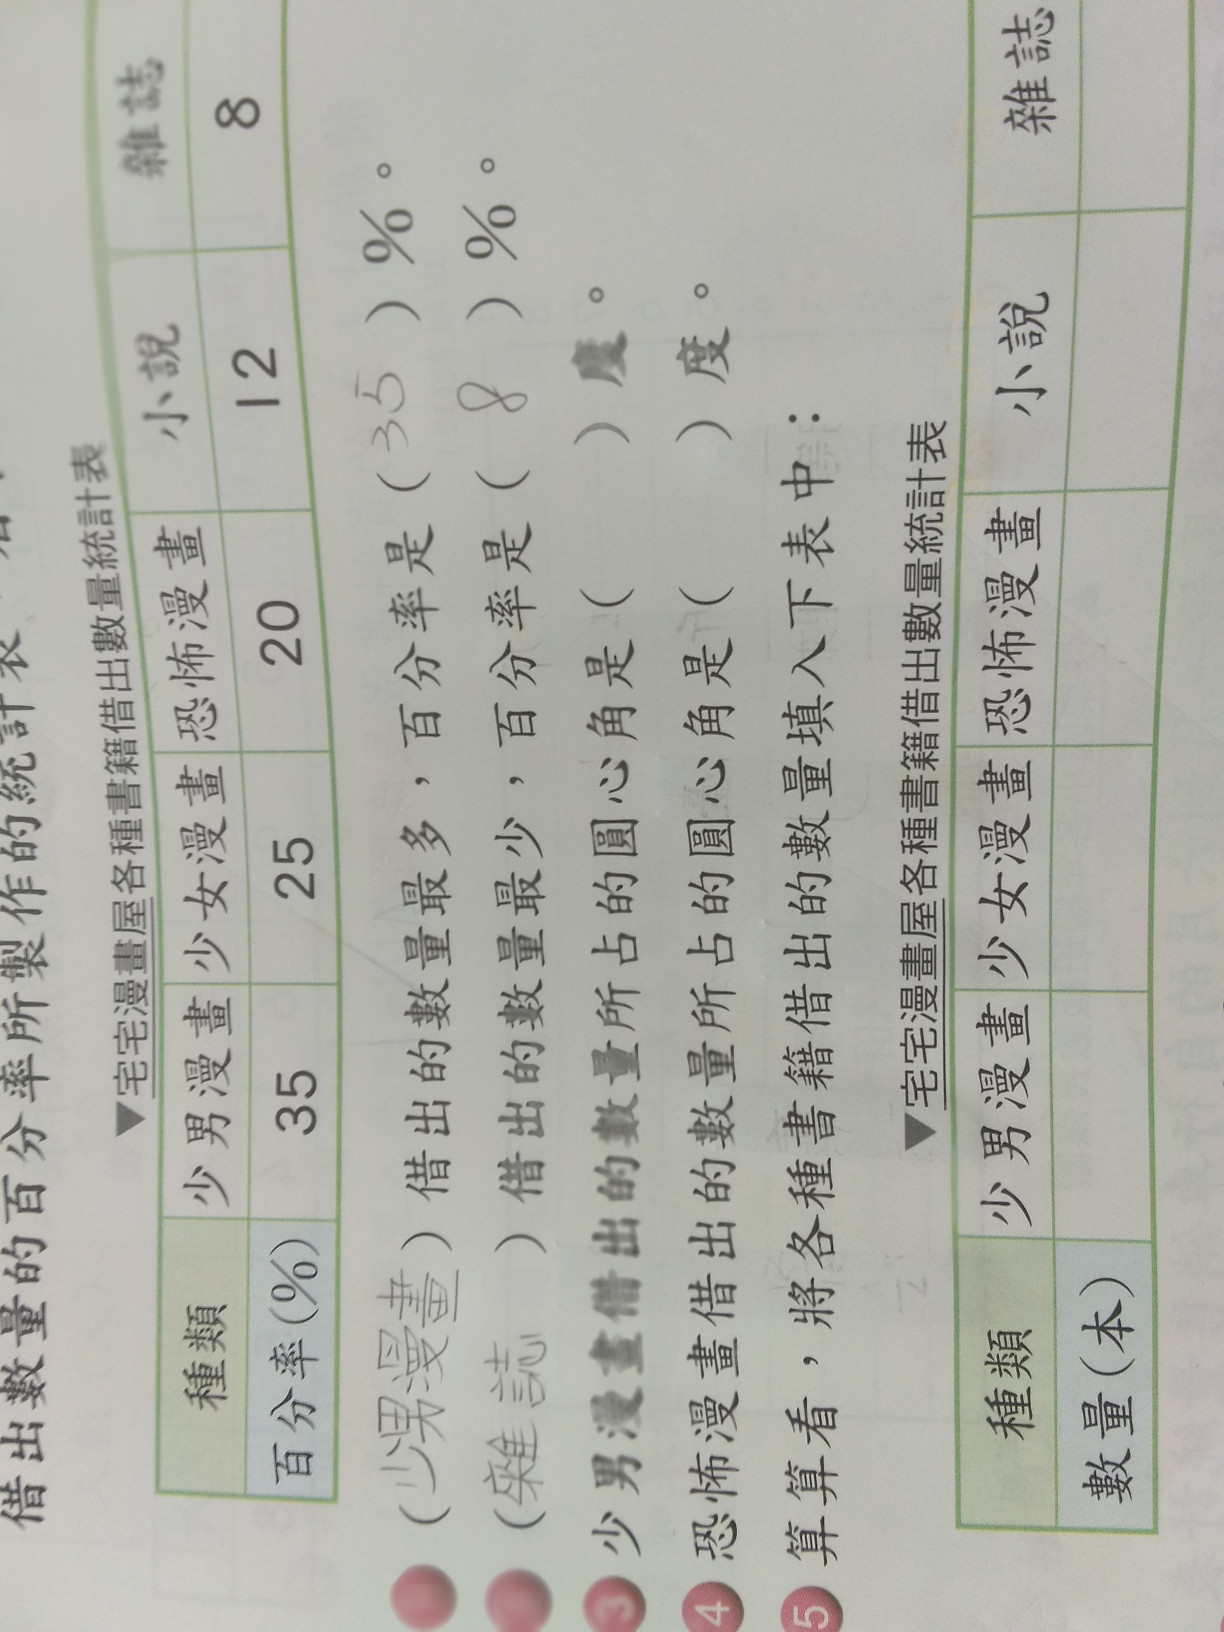 借出數量的百分率所製作的統計表
▼宅宅漫畫屋各種書籍借出數量統計表
種類 少男漫畫 少女漫畫 恐怖漫畫 小說 雜誌
百分率(%) 35 25 20 12 8
(少男漫畫)借出的數量最多，百分率是(35)%。
(雜誌)借出的數量最少，百分率是(8)%。
3 少男漫畫借出的數量所占的圓心角是( )度。
4 恐怖漫畫借出的數量所占的圓心角是( )度。
5 算算看，將各種書籍借出的數量填入下表中：
▼宅宅漫畫屋各種書籍借出數量統計表
種類 少男漫畫 少女漫畫 恐怖漫畫 小說 雜誌
數量(本)